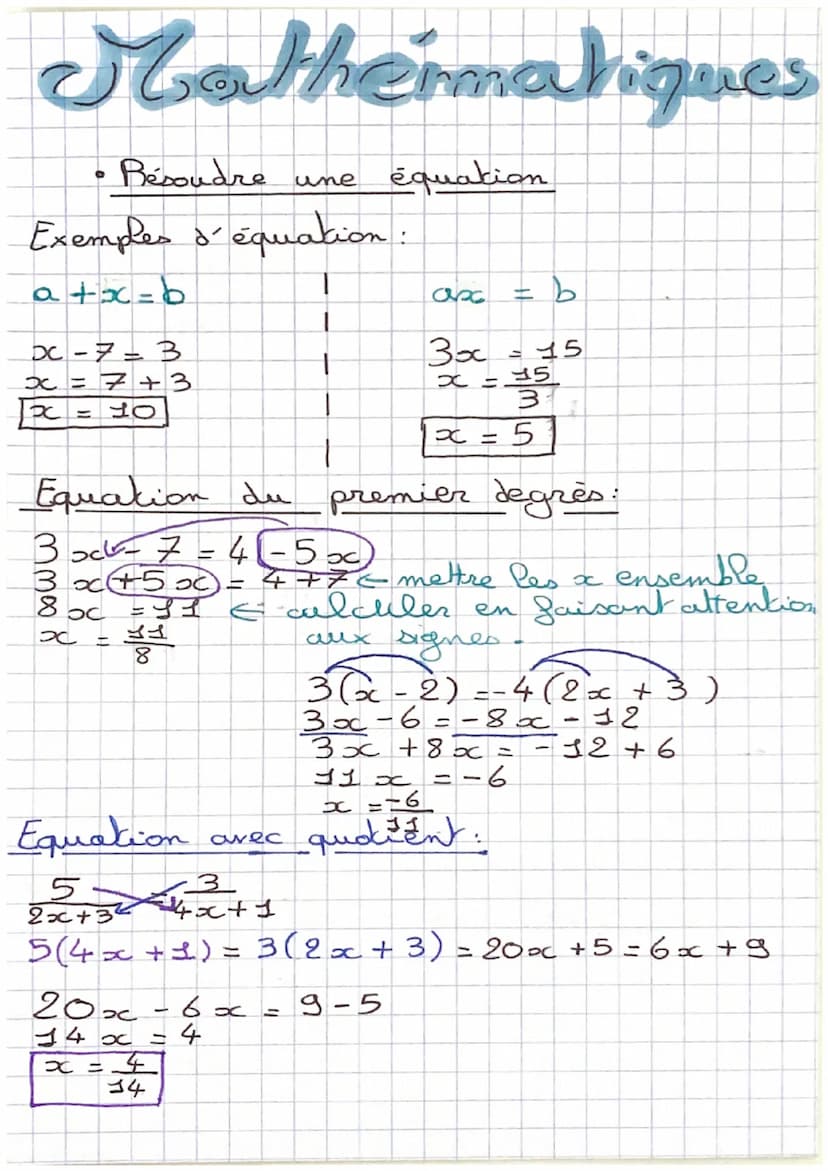 Mathématiques
• Résoudre une équation
Exemples d'équation :
a + x = b
x - 7 = 3
x = 7 + 3
x = 10
ax = b
3x = 15
x = 15/3
x = 5
Equation du premier degrès :
3x - 7 = 4 - 5x
3x + 5x = 4 + 7 ← mettre les x ensemble
8x = 11 ← calculer en faisant attention
aux signes.
x = 11/8
3(x - 2) = -4(2x + 3)
3x - 6 = -8x - 12
3x + 8x = -12 + 6
11x = -6
x = -6/11
Equation avec quotient :
5/(2x+3) = 3/(4x+1)
5(4x + 1) = 3(2x + 3) = 20x + 5 = 6x + 9
20x - 6x = 9 - 5
14x = 4
x = 4/14